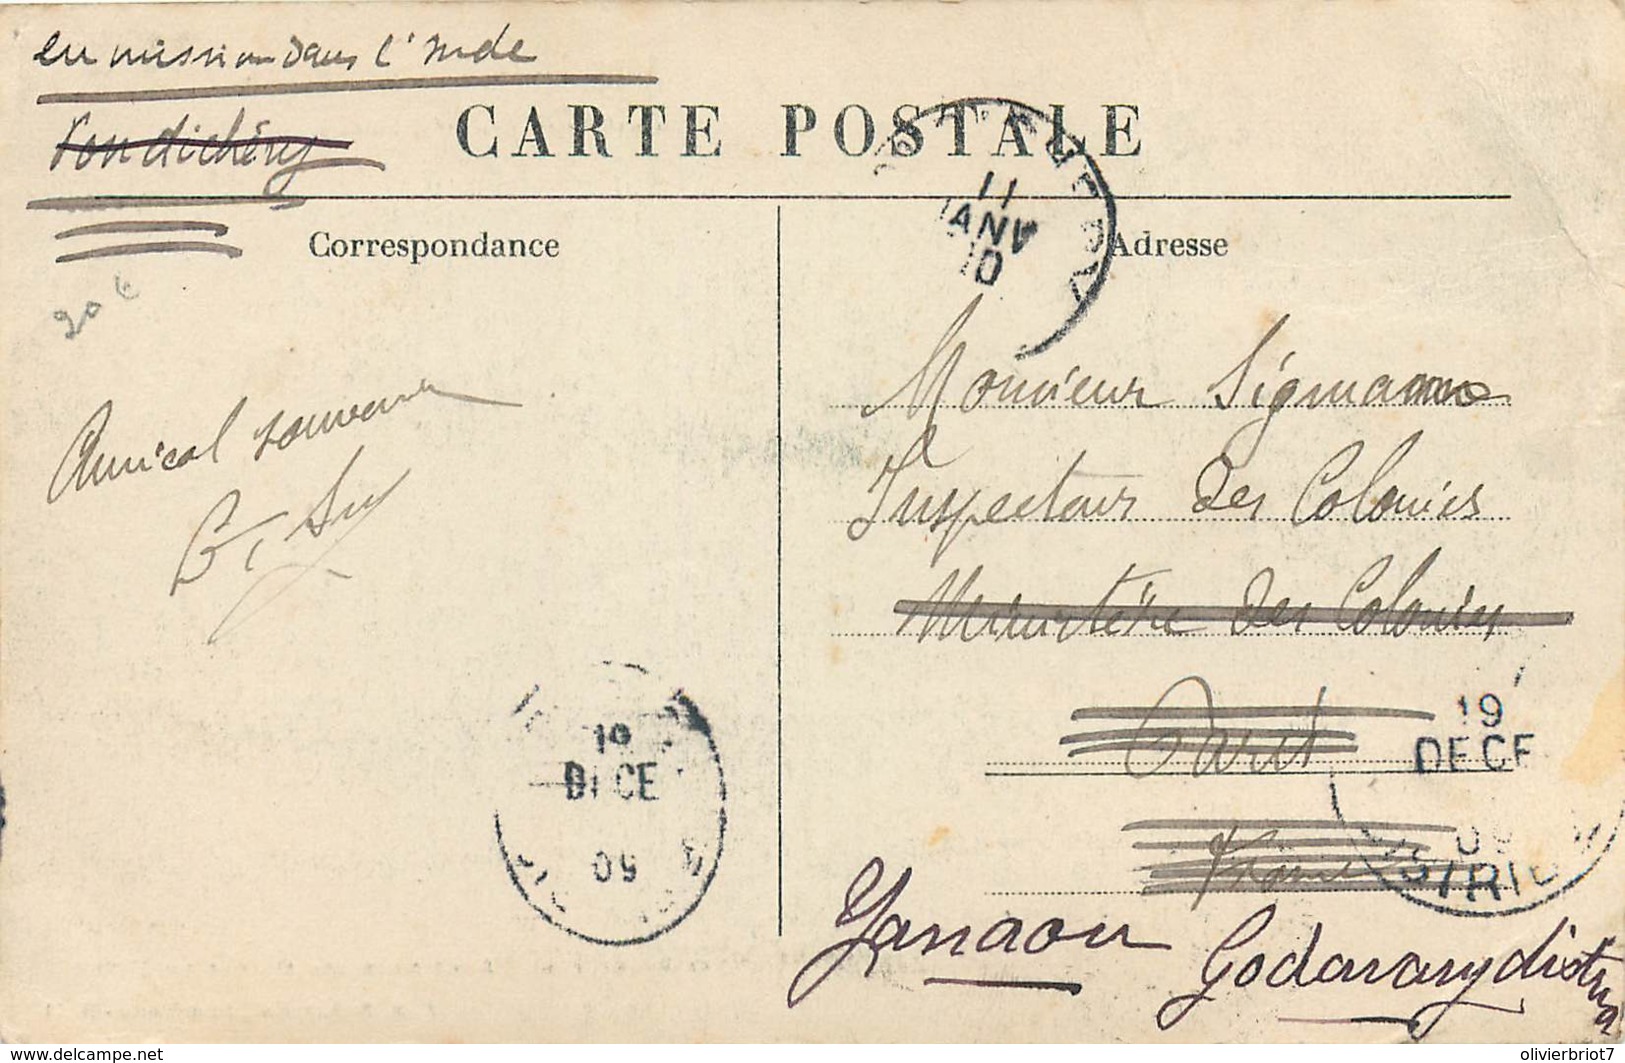 en mission dans l'Inde
Pondichéry
CARTE POSTALE
Correspondance
Adresse
PONDICHERY
11
JANV
10
20 €
Amical souvenir
Monsieur Sigmann
Inspecteur des Colonies
Ministère des Colonies
Paris
France
19
DECE
09
19
DECE
09
DISTRIB
Yanaon
Godavary district
delcampe.net
olivierbriot7